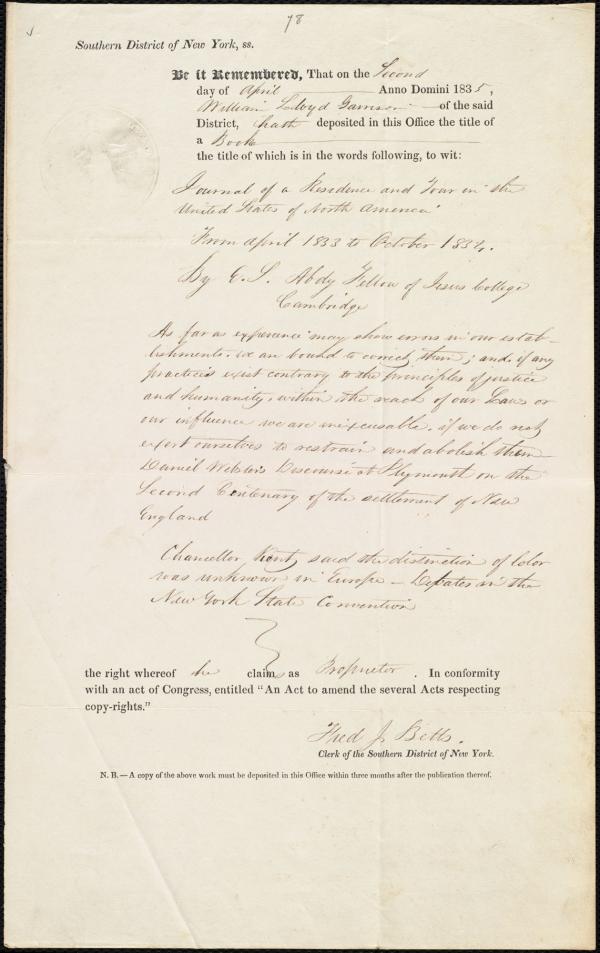 78
Southern District of New York, ss.
Be it Remembered, That on the Second
day of April Anno Domini 1835,
William Lloyd Garrison of the said
District, hath deposited in this Office the title of
a Book
the title of which is in the words following, to wit:
Journal of a Residence and Tour in the
United States of North America
From April 1833 to October 1834.
By E. S. Abdy Fellow of Jesus College
Cambridge
As far as experience may show errors in our estab-
lishments, we are bound to correct them; and if any
practices exist contrary to the principles of justice
and humanity, within the reach of our Laws or
our influence we are inexcusable, if we do not
exert ourselves to restrain and abolish them—
Daniel Webster's Discourse at Plymouth on the
Second Centenary of the settlement of New
England
Chancellor Kent, said the distinction of Color
was unknown in Europe — Debates in the
New York State Convention
the right whereof he claims as Proprietor. In conformity
with an act of Congress, entitled “An Act to amend the several Acts respecting
copy-rights.”
Fred J. Betts.
Clerk of the Southern District of New York.
N. B.—A copy of the above work must be deposited in this Office within three months after the publication thereof.